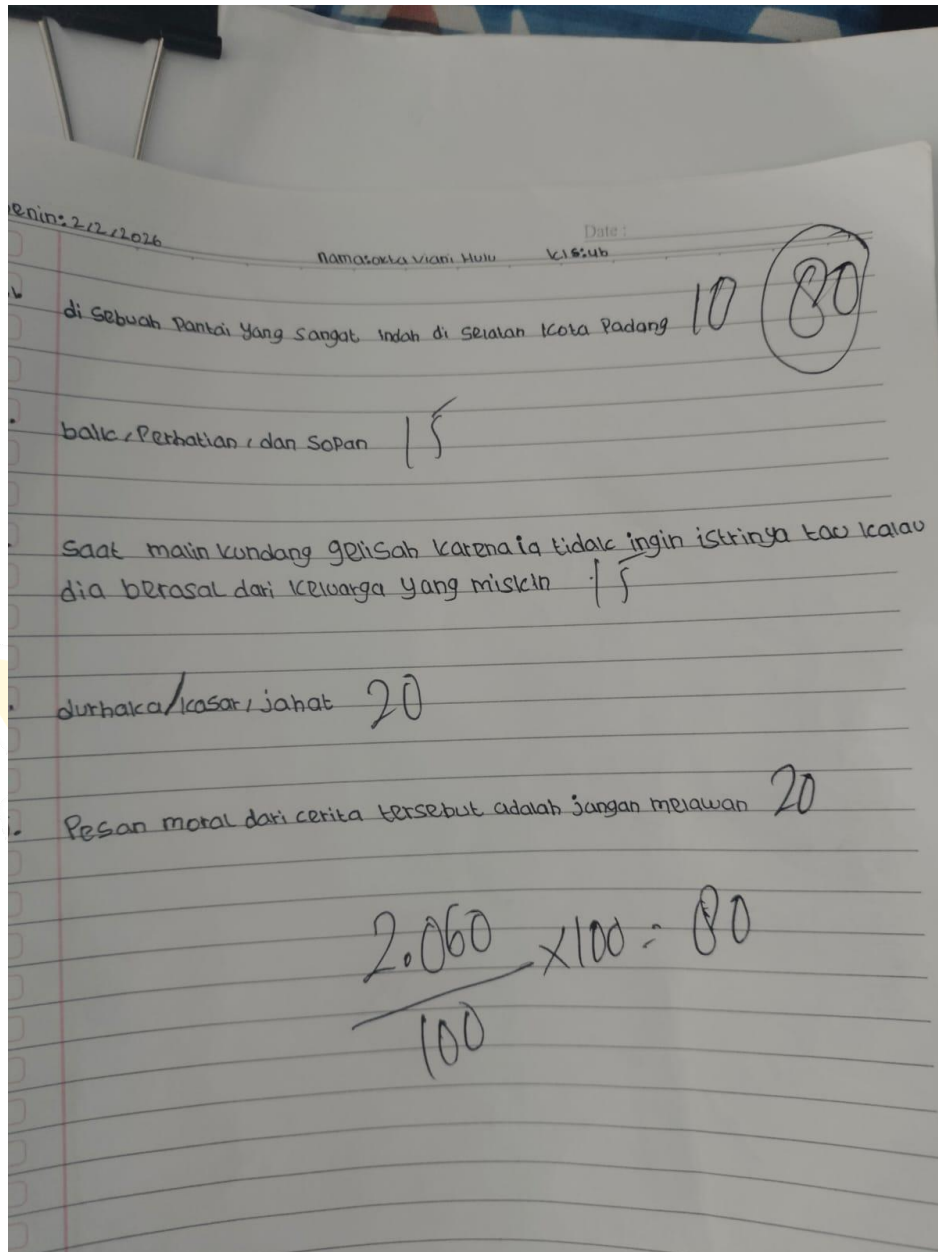 enin: 2/2/2026
Date :
nama: okta Viani Hulu kls: 4b
di Sebuah Pantai yang sangat indah di selatan Kota Padang 10 80
baik, Perhatian, dan Sopan 15
Saat malin kundang gelisah karena ia tidak ingin istrinya tau kalau
dia berasal dari keluarga yang miskin 15
durhaka/kasar, jahat 20
Pesan moral dari cerita tersebut adalah jangan melawan 20
2.060 x100 = 80
100